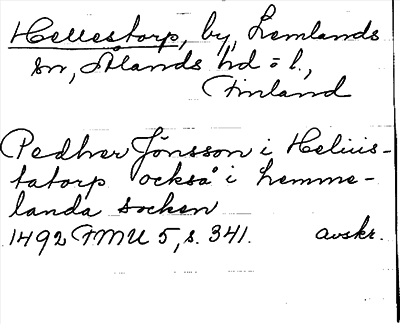 Hellestorp, by, Lemlands
sn, Ålands hd o l.,
Finland
Pedher Jönsson i Heliis-
tatorp också i Lemme-
landa socken
1492 FMU 5, s. 341. avskr.